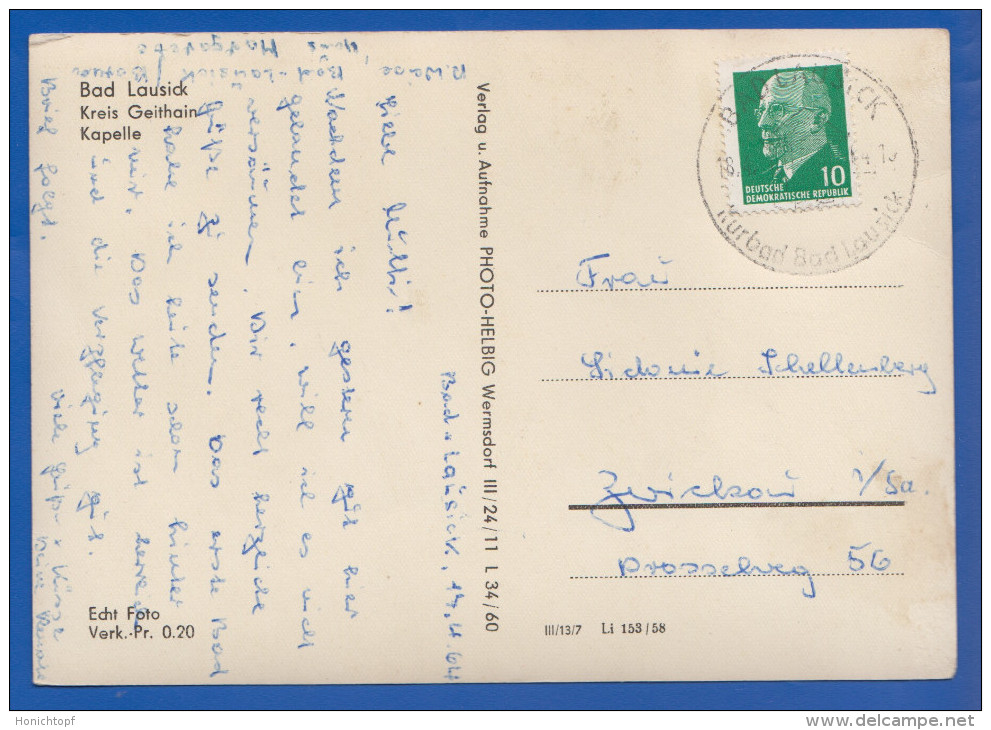 Bad Lausick
Kreis Geithain
Kapelle
Bad-Lausick, 14.4.64
Liebe Mutti!
Nachdem ich gestern gut hier
gelandet bin, will ich es nicht
versäumen, Dir recht herzliche
Grüße zu senden. Das erste Bad
habe ich heute schon hinter
mir. Das Wetter ist
und die Verpflegung gut.
Brief folgt.
Viele Grüße + Küsse
Deine
Echt Foto
Verk.-Pr. 0.20
Verlag u. Aufnahme PHOTO-HELBIG Wermsdorf III/24/11 L 34/60
10
DEUTSCHE
DEMOKRATISCHE REPUBLIK
Kurbad Bad Lausick
Frau
Sidonie Schellenberg
Zwickau i/Sa.
Drosselweg 56
III/13/7 Li 153/58
Honichtopf
www.delcampe.net